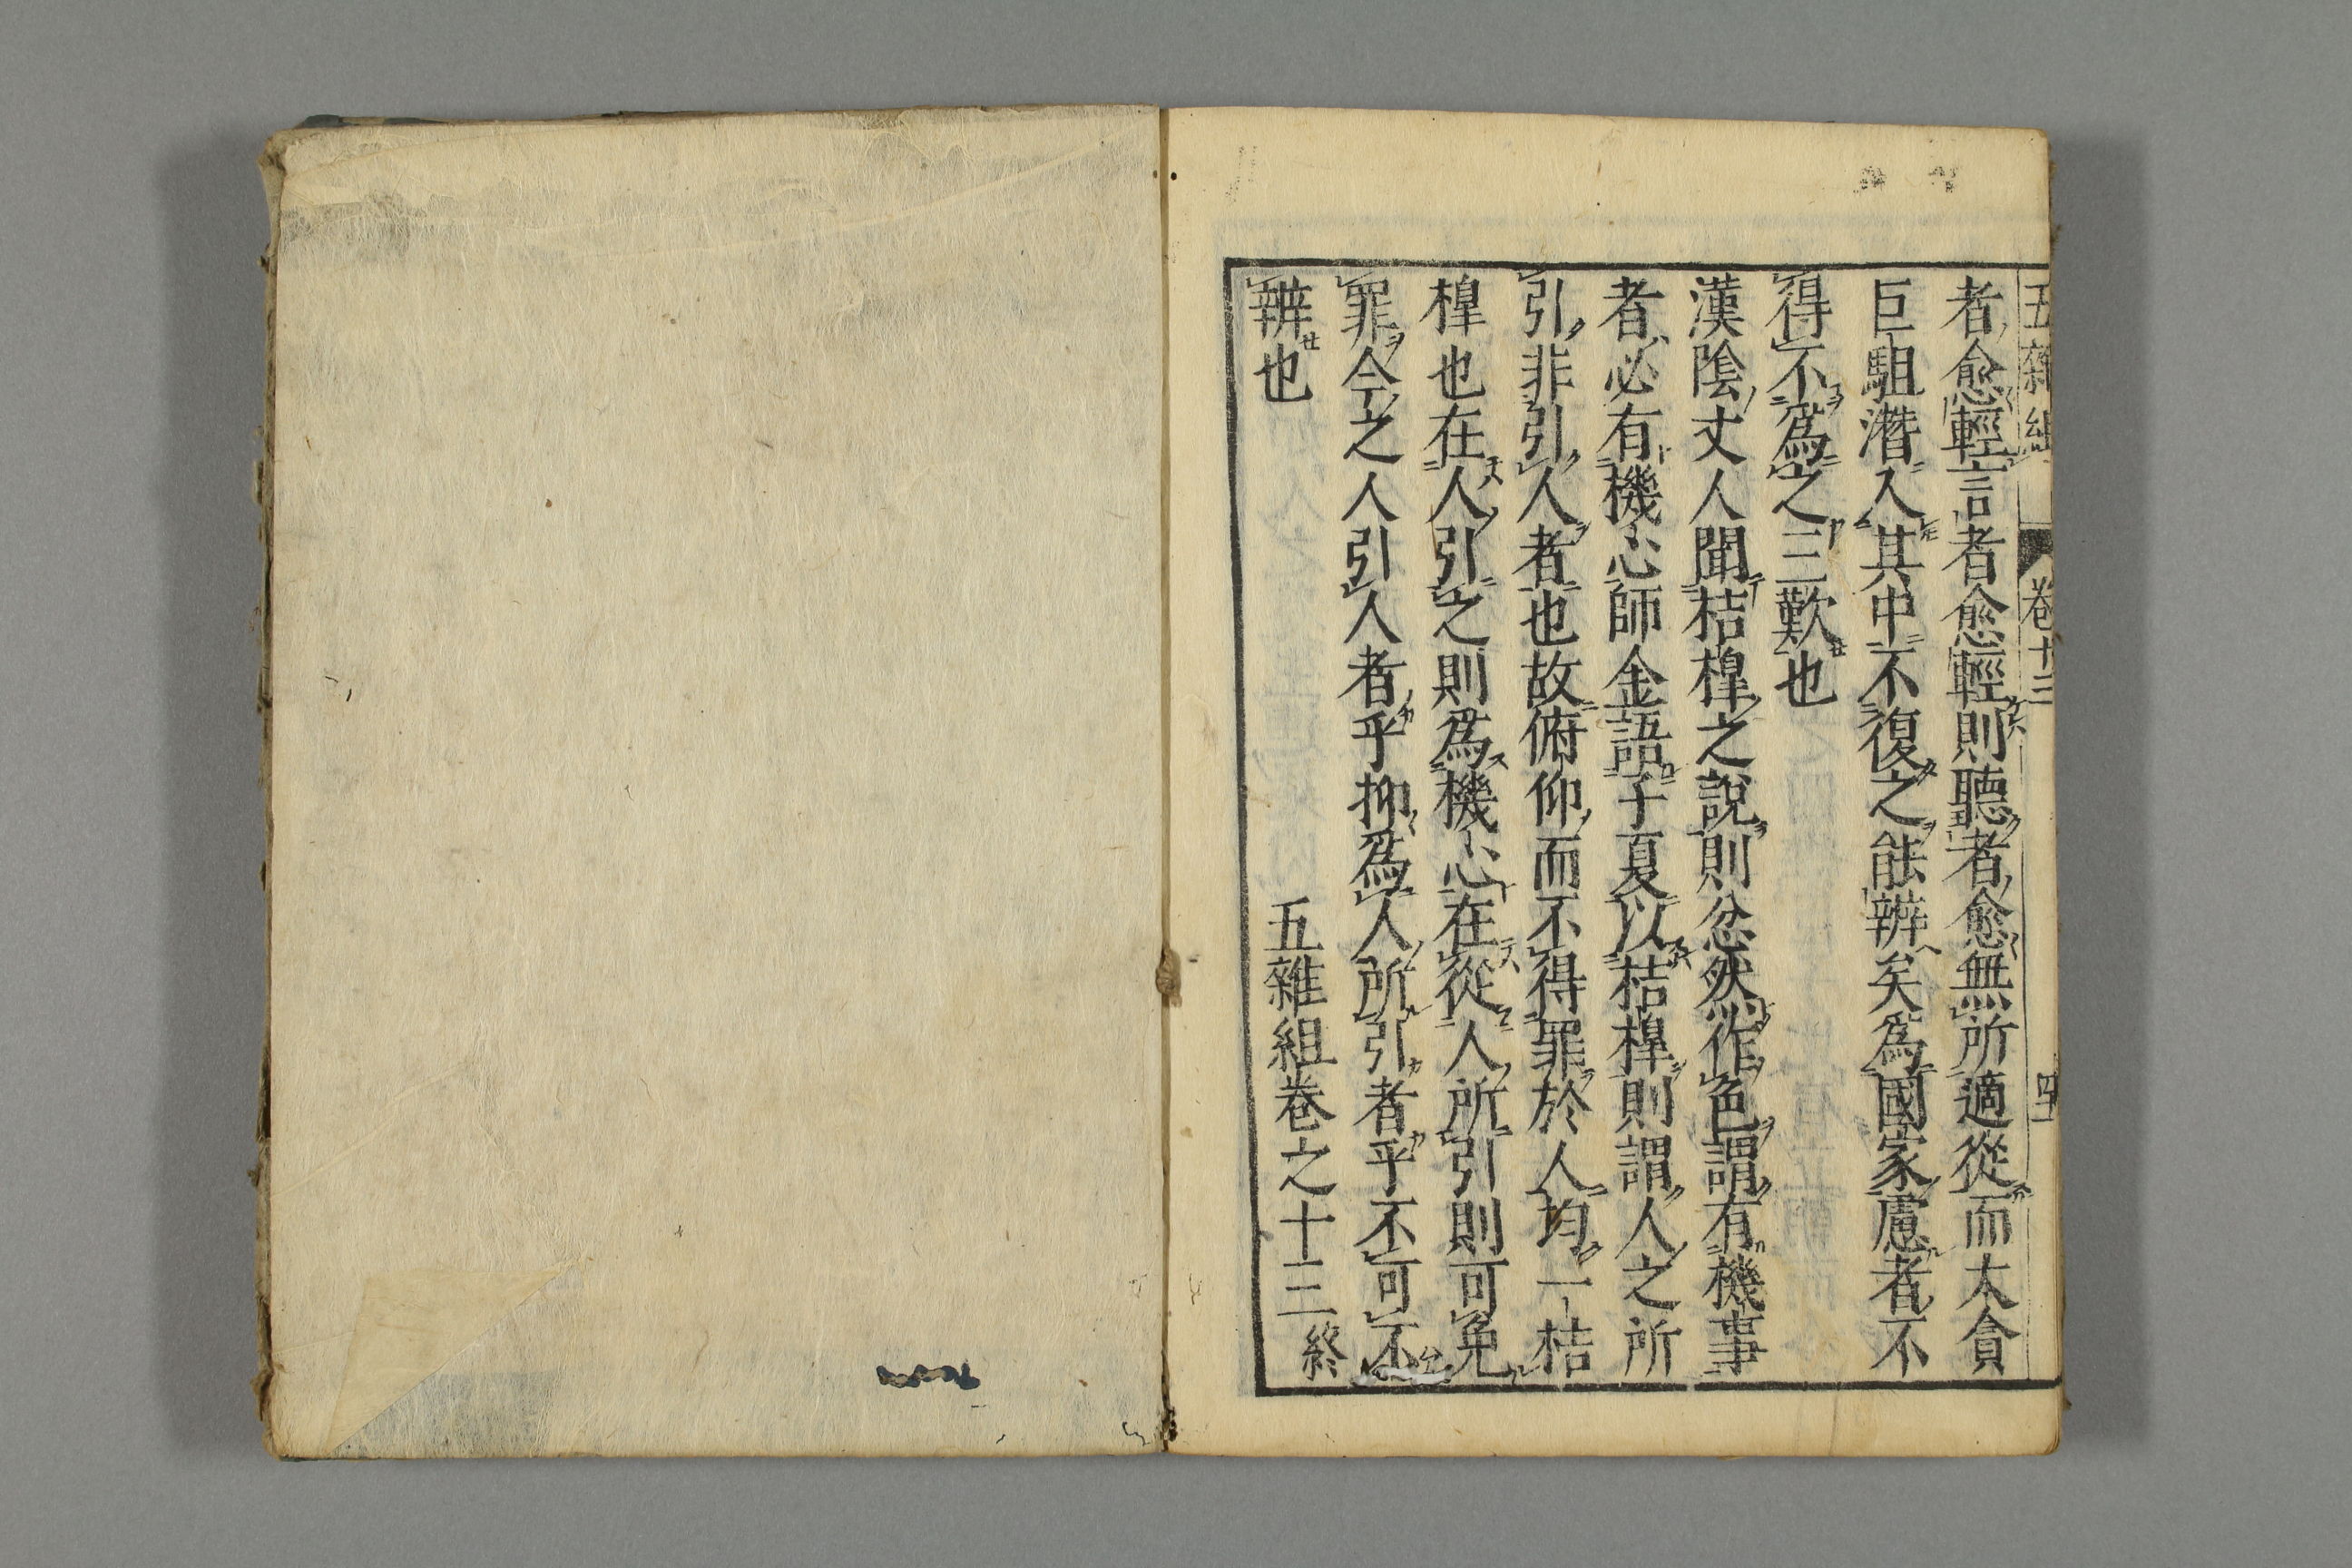 五雜組 卷十三 四十
者愈輕言者愈輕則聽者愈無所適從而大貪
巨駔潛入其中不復之能辨矣爲國家慮者不
得不爲之三歎也
漢陰丈人聞桔槹之說則忿然作色謂有機事
者必有機心師金語子夏以桔槹則謂人之所
引非引人者也故俯仰而不得罪於人均一桔
槹也在人引之則爲機心在從人所引則可免
罪今之人引人者乎抑爲人所引者乎不可不
辨也
五雜組卷之十三終